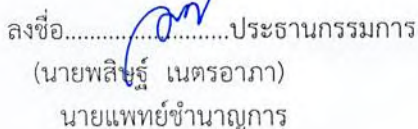 ลงชื่อ.......................ประธานกรรมการ
(นายพสิษฐ์ เนตรอาภา)
นายแพทย์ชำนาญการ